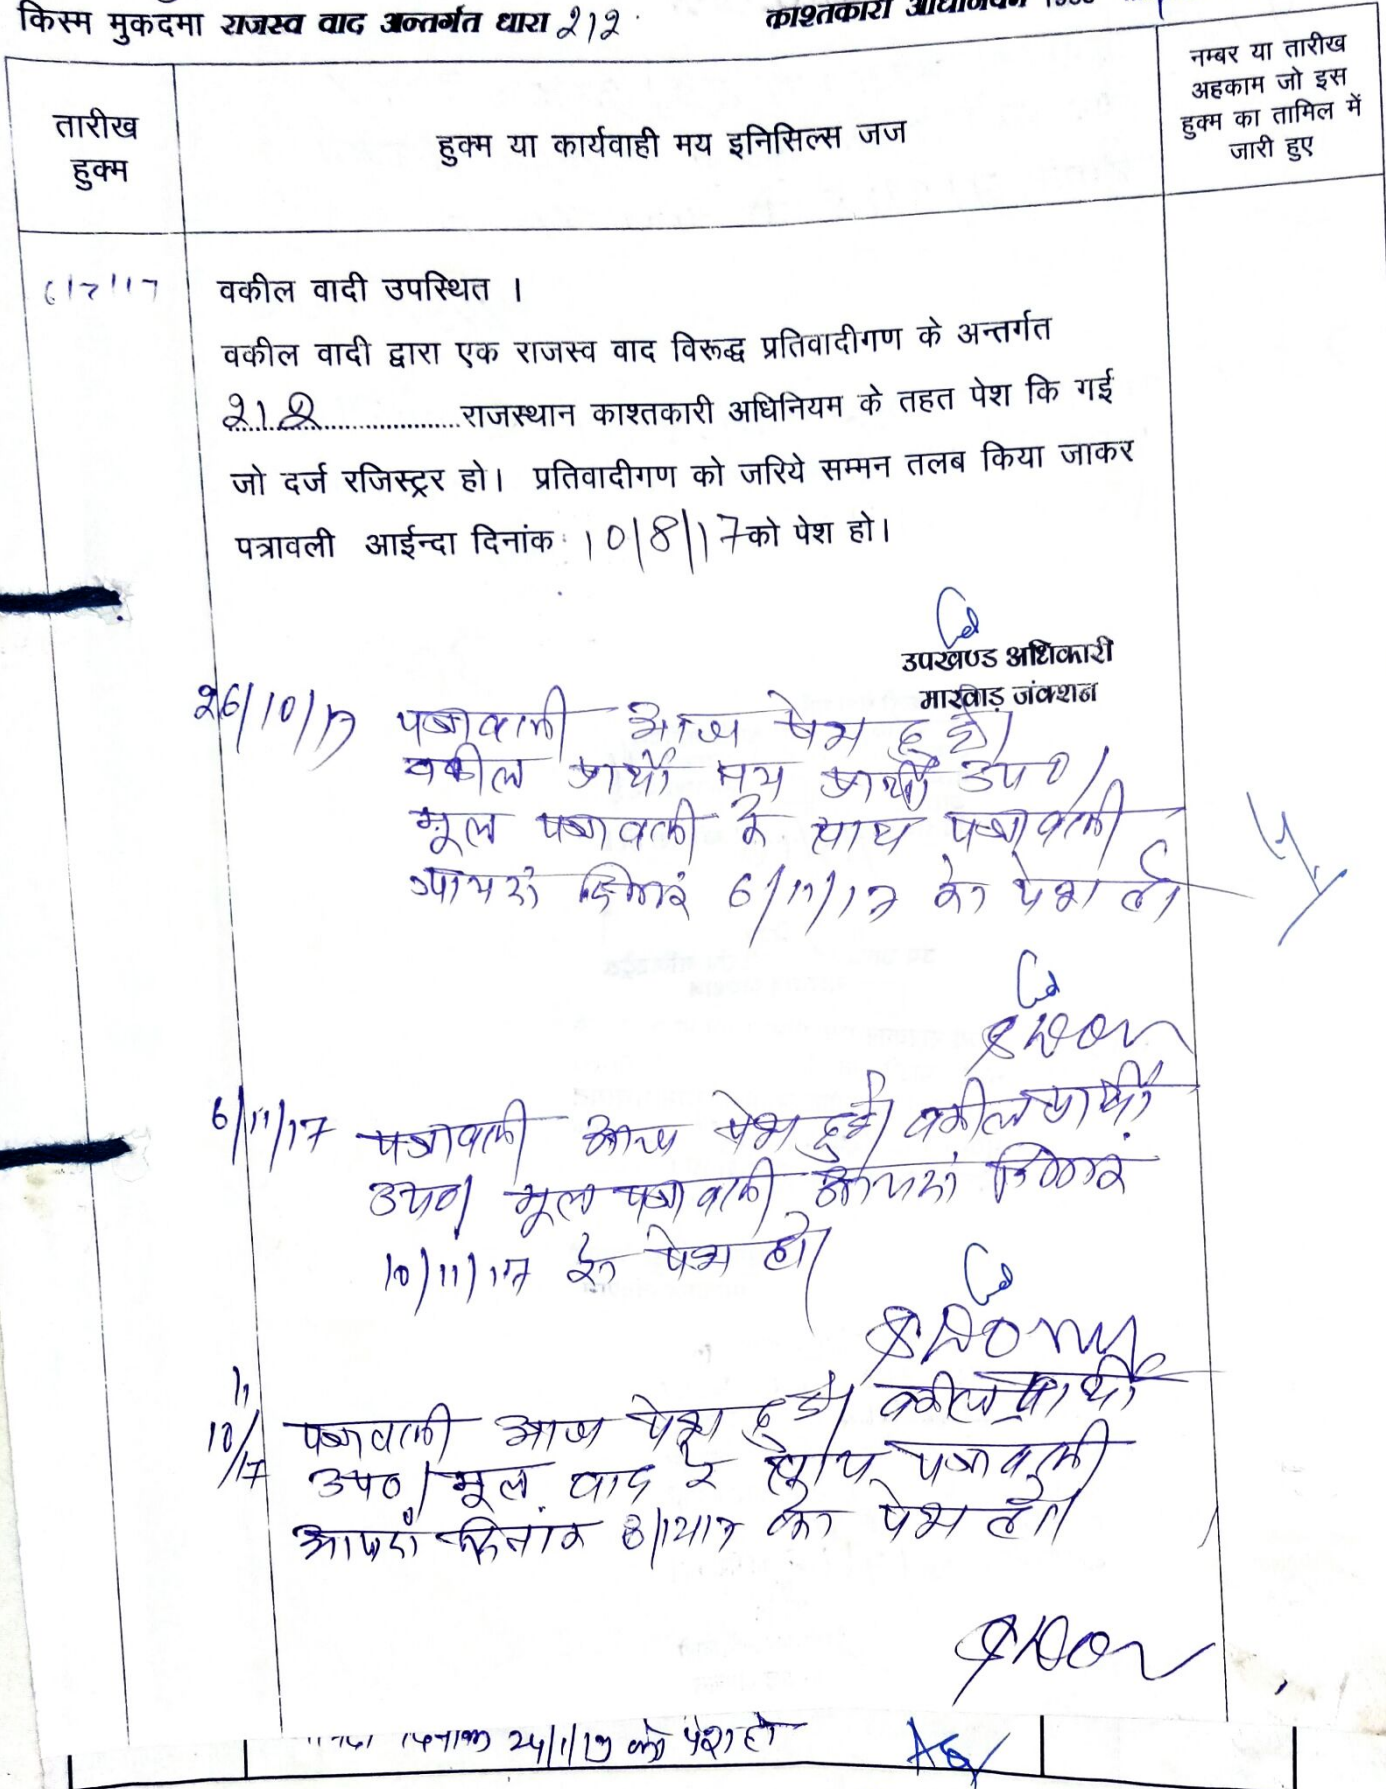 किस्म मुकदमा राजस्व वाद अन्तर्गत धारा 212. काश्तकारी अधिनियम
तारीख हुक्म
हुक्म या कार्यवाही मय इनिसिल्स जज
नम्बर या तारीख
अहकाम जो इस
हुक्म का तामिल में
जारी हुए
वकील वादी उपस्थित ।
वकील वादी द्वारा एक राजस्व वाद विरूद्ध प्रतिवादीगण के अन्तर्गत
212 राजस्थान काश्तकारी अधिनियम के तहत पेश कि गई
जो दर्ज रजिस्ट्रर हो। प्रतिवादीगण को जरिये सम्मन तलब किया जाकर
पत्रावली आईन्दा दिनांक 10/8/17 को पेश हो।
उपखण्ड अधिकारी
मारवाड़ जंक्शन
26/10/17 पत्रावली आज पेश हुई।
वकील प्रार्थी मय प्रार्थी उप०।
मूल पत्रावली के साथ पत्रावली
6/11/17 को पेश हो।
6/11/17 पत्रावली आज पेश हुई। वकील प्रार्थी
उप०। मूल पत्रावली
10/11/17 को पेश हो।
10/11/17 पत्रावली आज पेश हुई। वकील प्रार्थी
उप०। मूल वाद के साथ पत्रावली
दिनांक 8/12/17 को पेश हो।
दिनांक को पेश हो